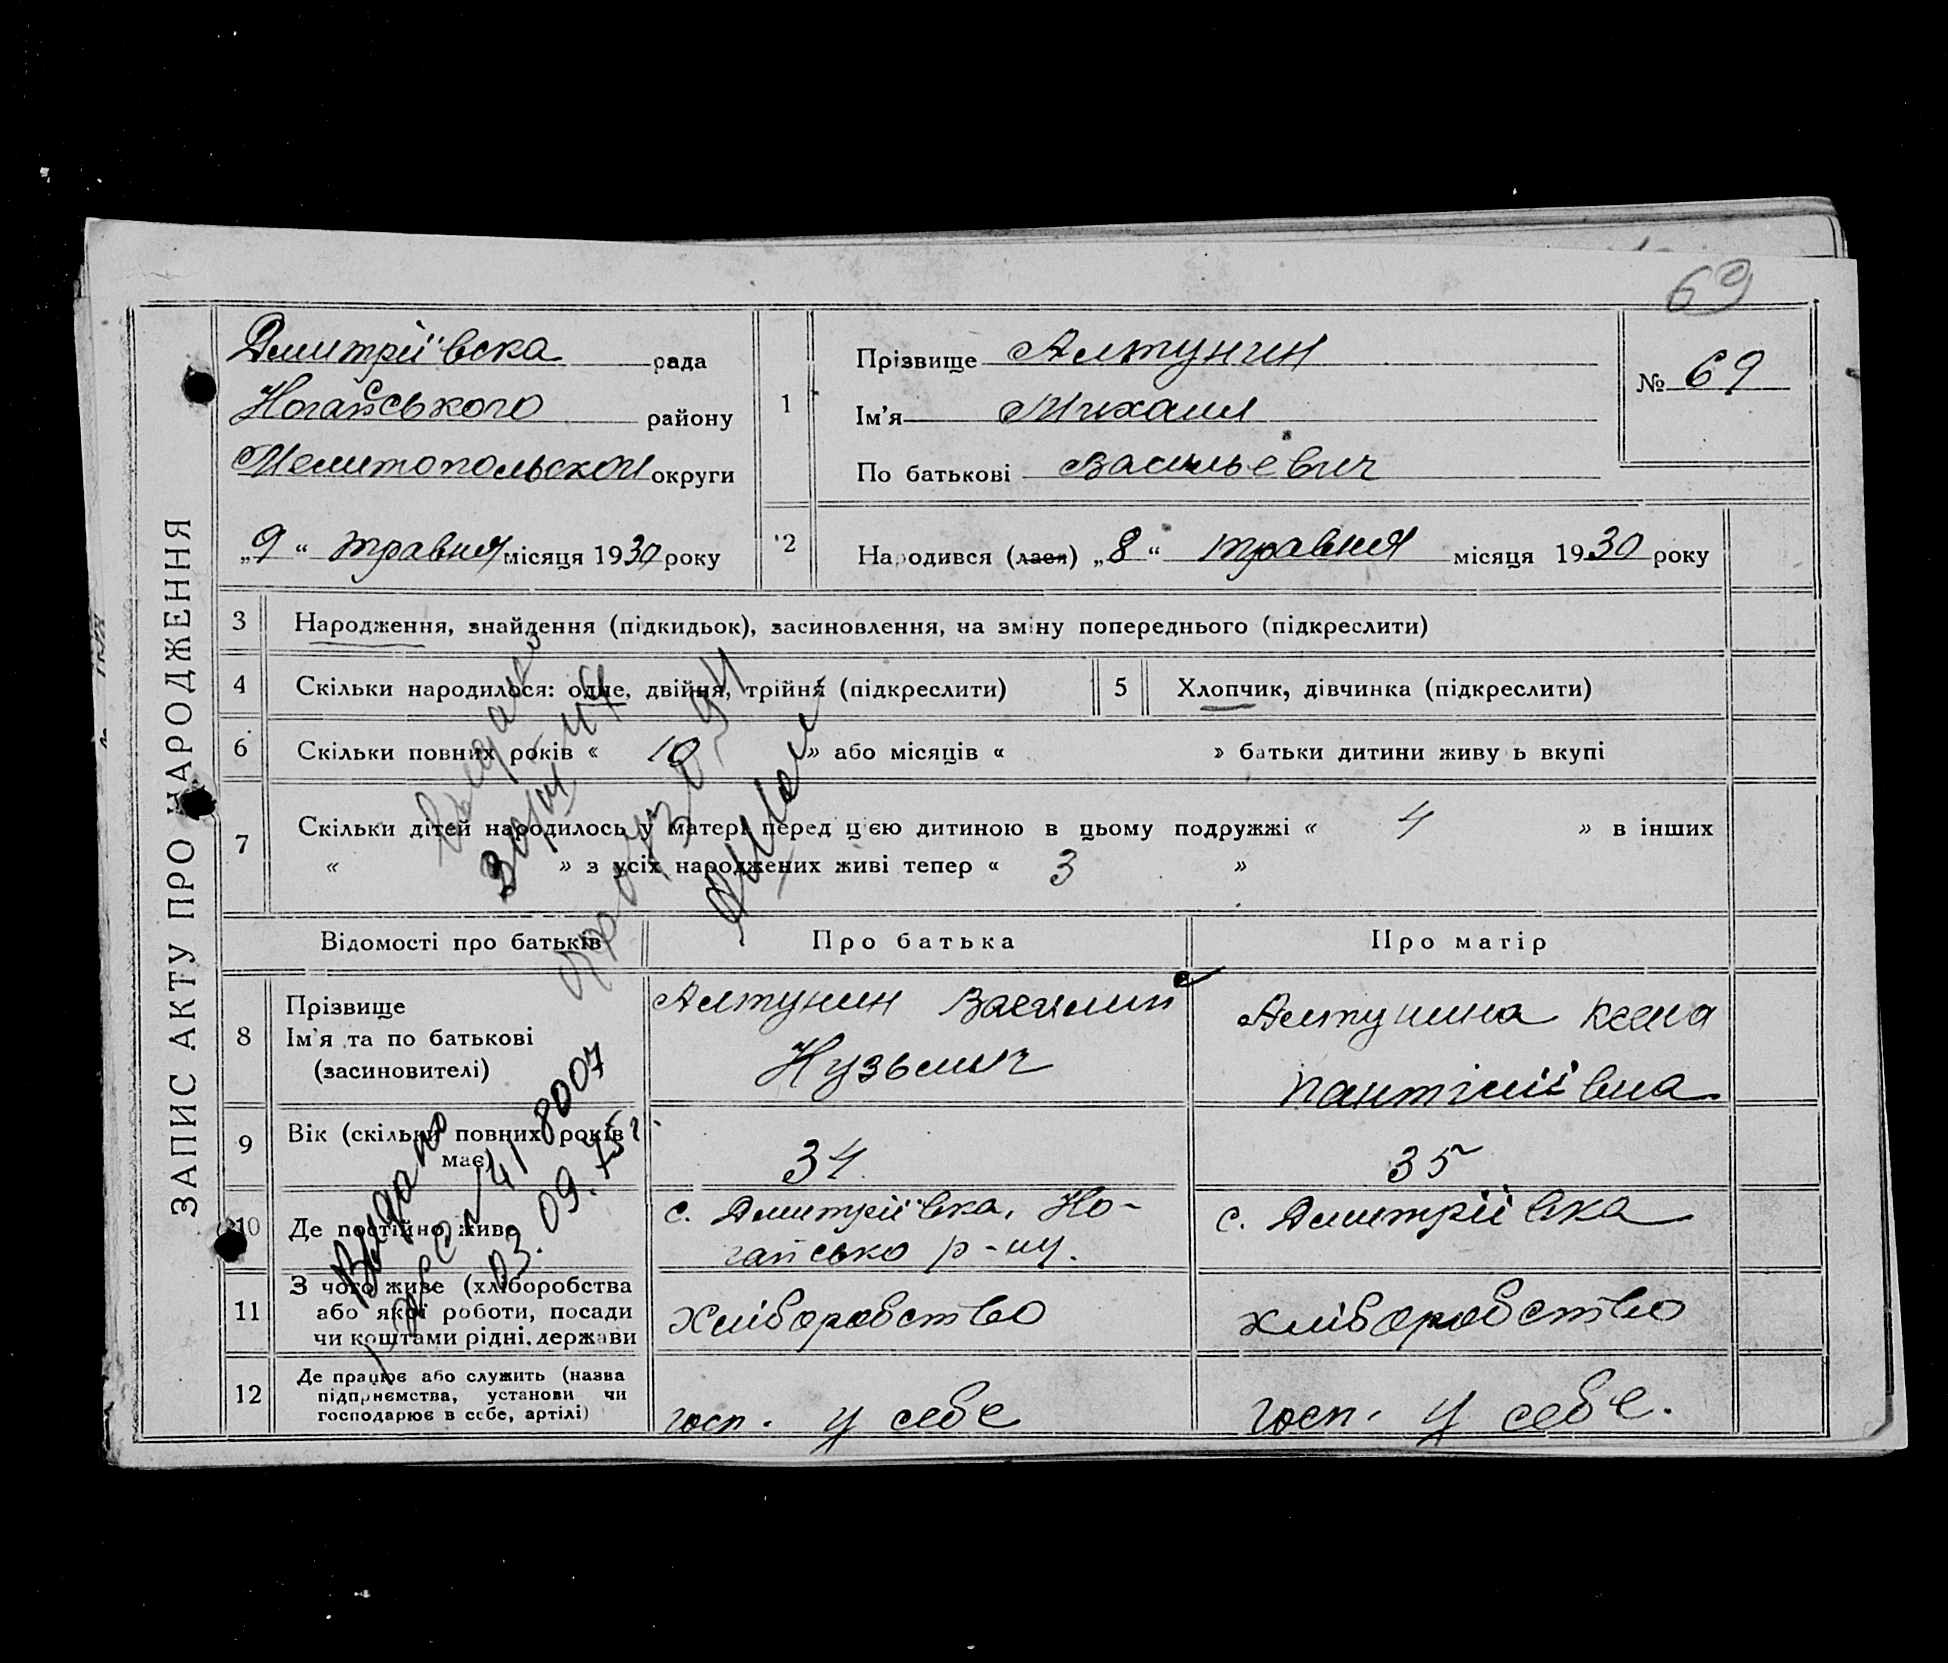 69
ЗАПИС АКТУ ПРО НАРОДЖЕННЯ
Дмитріївска рада
Ногайського району
Мелитопольскои округи
„9“ травня місяця 1930 року
1
Прізвище Алтунин
Ім'я Михаил
По батькові Васильевич
№ 69
2
Народився (лася) „8“ травня місяця 1930 року
3 Народження, знайдення (підкидьок), засиновлення, на зміну попереднього (підкреслити)
4 Скільки народилося: одне, двійня, трійня (підкреслити)
5 Хлопчик, дівчинка (підкреслити)
6 Скільки повних років « 10 » або місяців « » батьки дитини живу ь вкупі
7 Скільки дітей народилось у матері перед цією дитиною в цьому подружжі « 4 » в інших
« » з усіх народжених живі тепер « 3 »
Відомості про батьків Про батька Про матір
8 Прізвище
Ім'я та по батькові
(засиновителі)
Алтунин Василий
Кузьмич
Алтунина
9 Вік (скільки повних років має)
34
35
10 Де постійно живе
с. Дмитріївка, Но-
гайсько р-ну.
с. Дмитріївка
11 З чого живе (хліборобства
або якої роботи, посади
чи коштами рідні, держави
хліборобство
хліборобство
12 Де працює або служить (назва
підприємства, установи чи
господарює в себе, артілі)
госп. у себе
госп. у себе.
Видано
418007
03.09.75г.